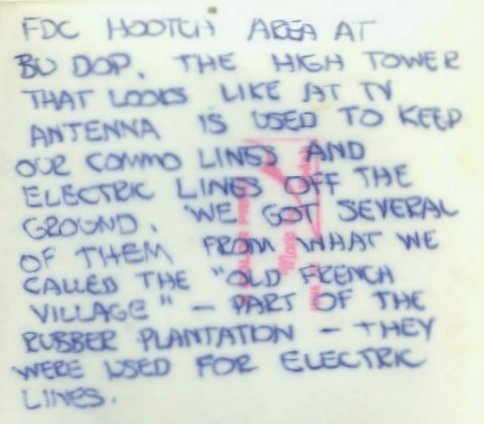 FDC HOOTCH AREA AT
BU DOP. THE HIGH TOWER
THAT LOOKS LIKE AT TV
ANTENNA IS USED TO KEEP
OUR COMMO LINES AND
ELECTRIC LINES OFF THE
GROUND. WE GOT SEVERAL
OF THEM FROM WHAT WE
CALLED THE "OLD FRENCH
VILLAGE" - PART OF THE
RUBBER PLANTATION - THEY
WERE USED FOR ELECTRIC
LINES.